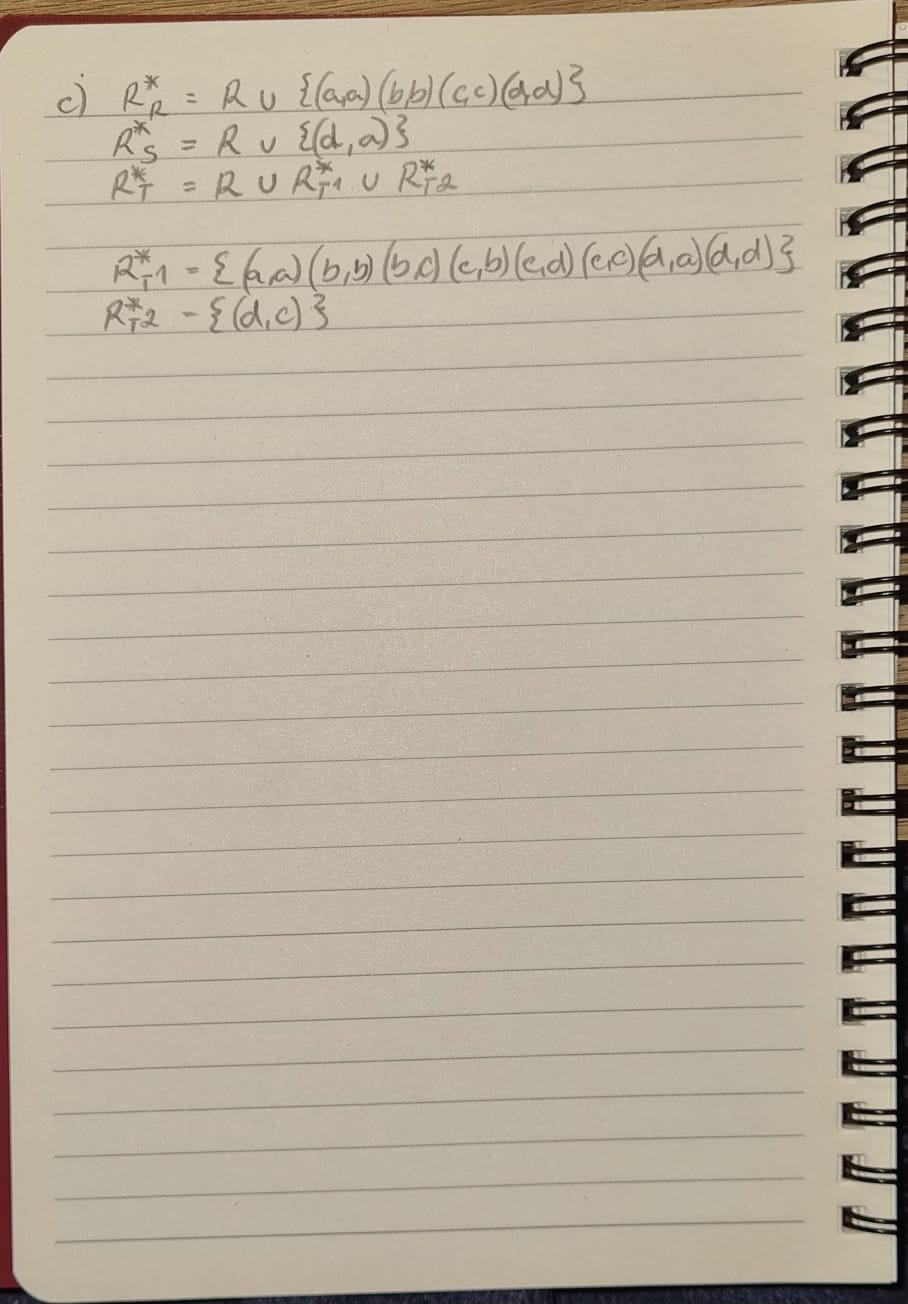 c) R*R = R ∪ {(a,a)(b,b)(c,c)(d,d)}
R*S = R ∪ {(d,a)}
R*T = R ∪ R*T1 ∪ R*T2
R*T1 = {(a,a)(b,b)(b,c)(c,b)(c,d)(c,c)(d,a)(d,d)}
R*T2 = {(d,c)}